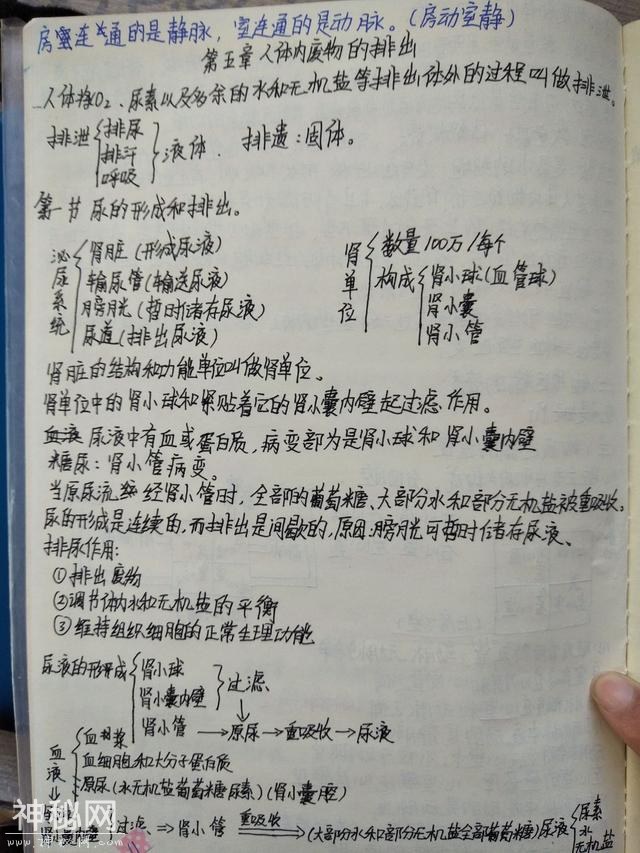 房室连通的是静脉，室连通的是动脉。(房动室静)
第五章 人体内废物的排出
人体将CO2、尿素以及多余的水和无机盐等排出体外的过程叫做排泄。
排泄 排尿 排汗 呼吸 液体. 排遗:固体。
第一节 尿的形成和排出。
泌尿系统
肾脏(形成尿液)
输尿管(输送尿液)
膀胱(暂时储存尿液)
尿道(排出尿液)
肾单位
数量100万/每个
构成 肾小球(血管球)
肾小囊
肾小管
肾脏的结构和功能单位叫做肾单位。
肾单位中的肾小球和紧贴着它的肾小囊内壁起过滤作用。
血液 尿液中有血或蛋白质,病变部为是肾小球和肾小囊内壁
糖尿:肾小管病变。
当原尿流经肾小管时,全部的葡萄糖、大部分水和部分无机盐被重吸收。
尿的形成是连续的,而排出是间歇的,原因:膀胱可暂时储存尿液、
排尿作用:
①排出废物
②调节体内水和无机盐的平衡
③维持组织细胞的正常生理功能
尿液的形成 肾小球
肾小囊内壁 过滤
肾小管 → 原尿 → 重吸收 → 尿液
血液
血浆
血细胞和大分子蛋白质
原尿(水无机盐葡萄糖尿素)(肾小囊腔)
肾小囊内壁 过滤 ⇒ 肾小管 重吸收 (大部分水和部分无机盐全部葡萄糖)尿液 尿素 水 无机盐
神秘网
www.shenmiw.com